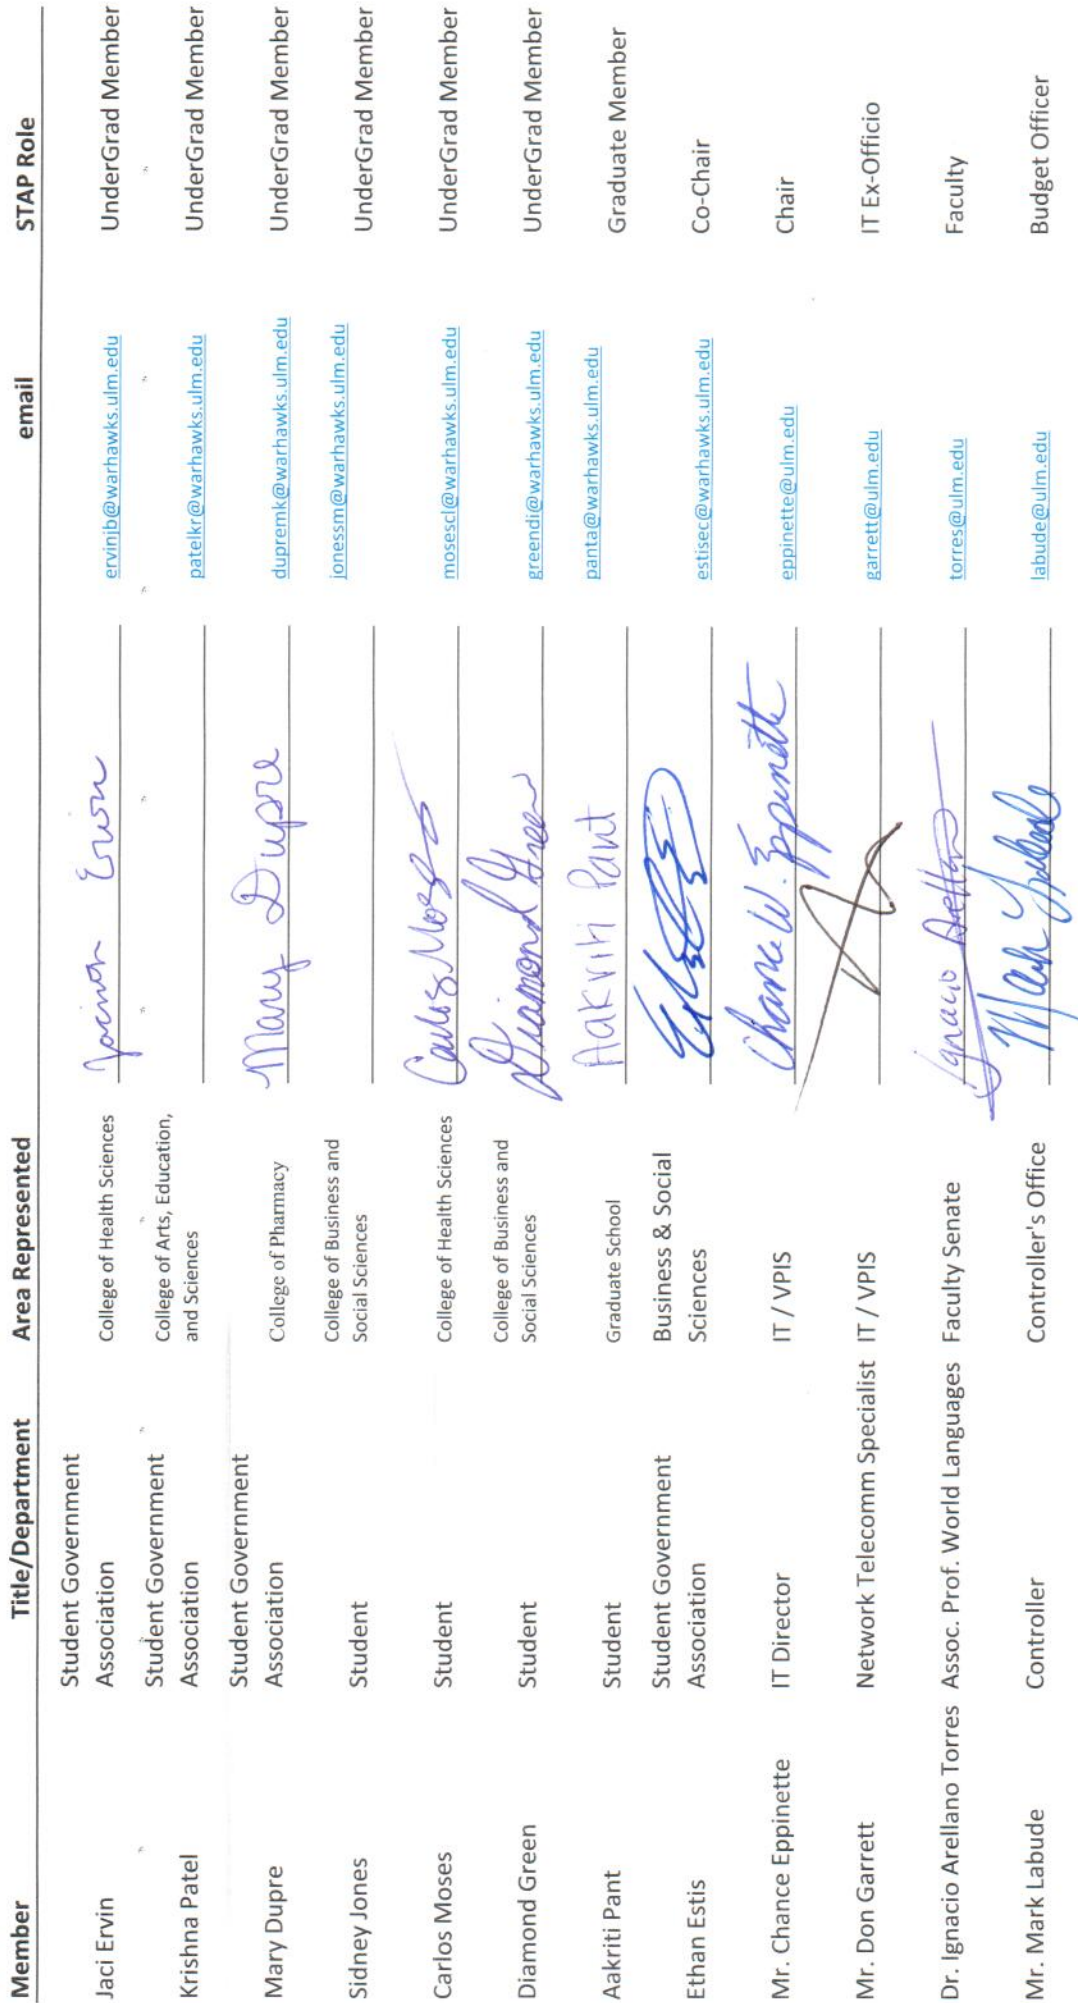 Member Title/Department Area Represented email STAP Role
Student Government
Jaci Ervin Association College of Health Sciences Jacinon Ervin ervinjb@warhawks.ulm.edu UnderGrad Member
Student Government College of Arts, Education,
Krishna Patel Association and Sciences patelkr@warhawks.ulm.edu UnderGrad Member
Student Government
Mary Dupre Association College of Pharmacy Mary Dupre dupremk@warhawks.ulm.edu UnderGrad Member
College of Business and
Sidney Jones Student Social Sciences jonessm@warhawks.ulm.edu UnderGrad Member
Carlos Moses Student College of Health Sciences Carlos Moses mosescl@warhawks.ulm.edu UnderGrad Member
College of Business and
Diamond Green Student Social Sciences Diamond Green greendi@warhawks.ulm.edu UnderGrad Member
Aakriti Pant Student Graduate School Aakriti Pant panta@warhawks.ulm.edu Graduate Member
Student Government Business & Social
Ethan Estis Association Sciences estisec@warhawks.ulm.edu Co-Chair
Mr. Chance Eppinette IT Director IT / VPIS Chance W. Eppinette eppinette@ulm.edu Chair
Mr. Don Garrett Network Telecomm Specialist IT / VPIS garrett@ulm.edu IT Ex-Officio
Dr. Ignacio Arellano Torres Assoc. Prof. World Languages Faculty Senate Ignacio Arellano torres@ulm.edu Faculty
Mr. Mark Labude Controller Controller's Office Mark Labude labude@ulm.edu Budget Officer